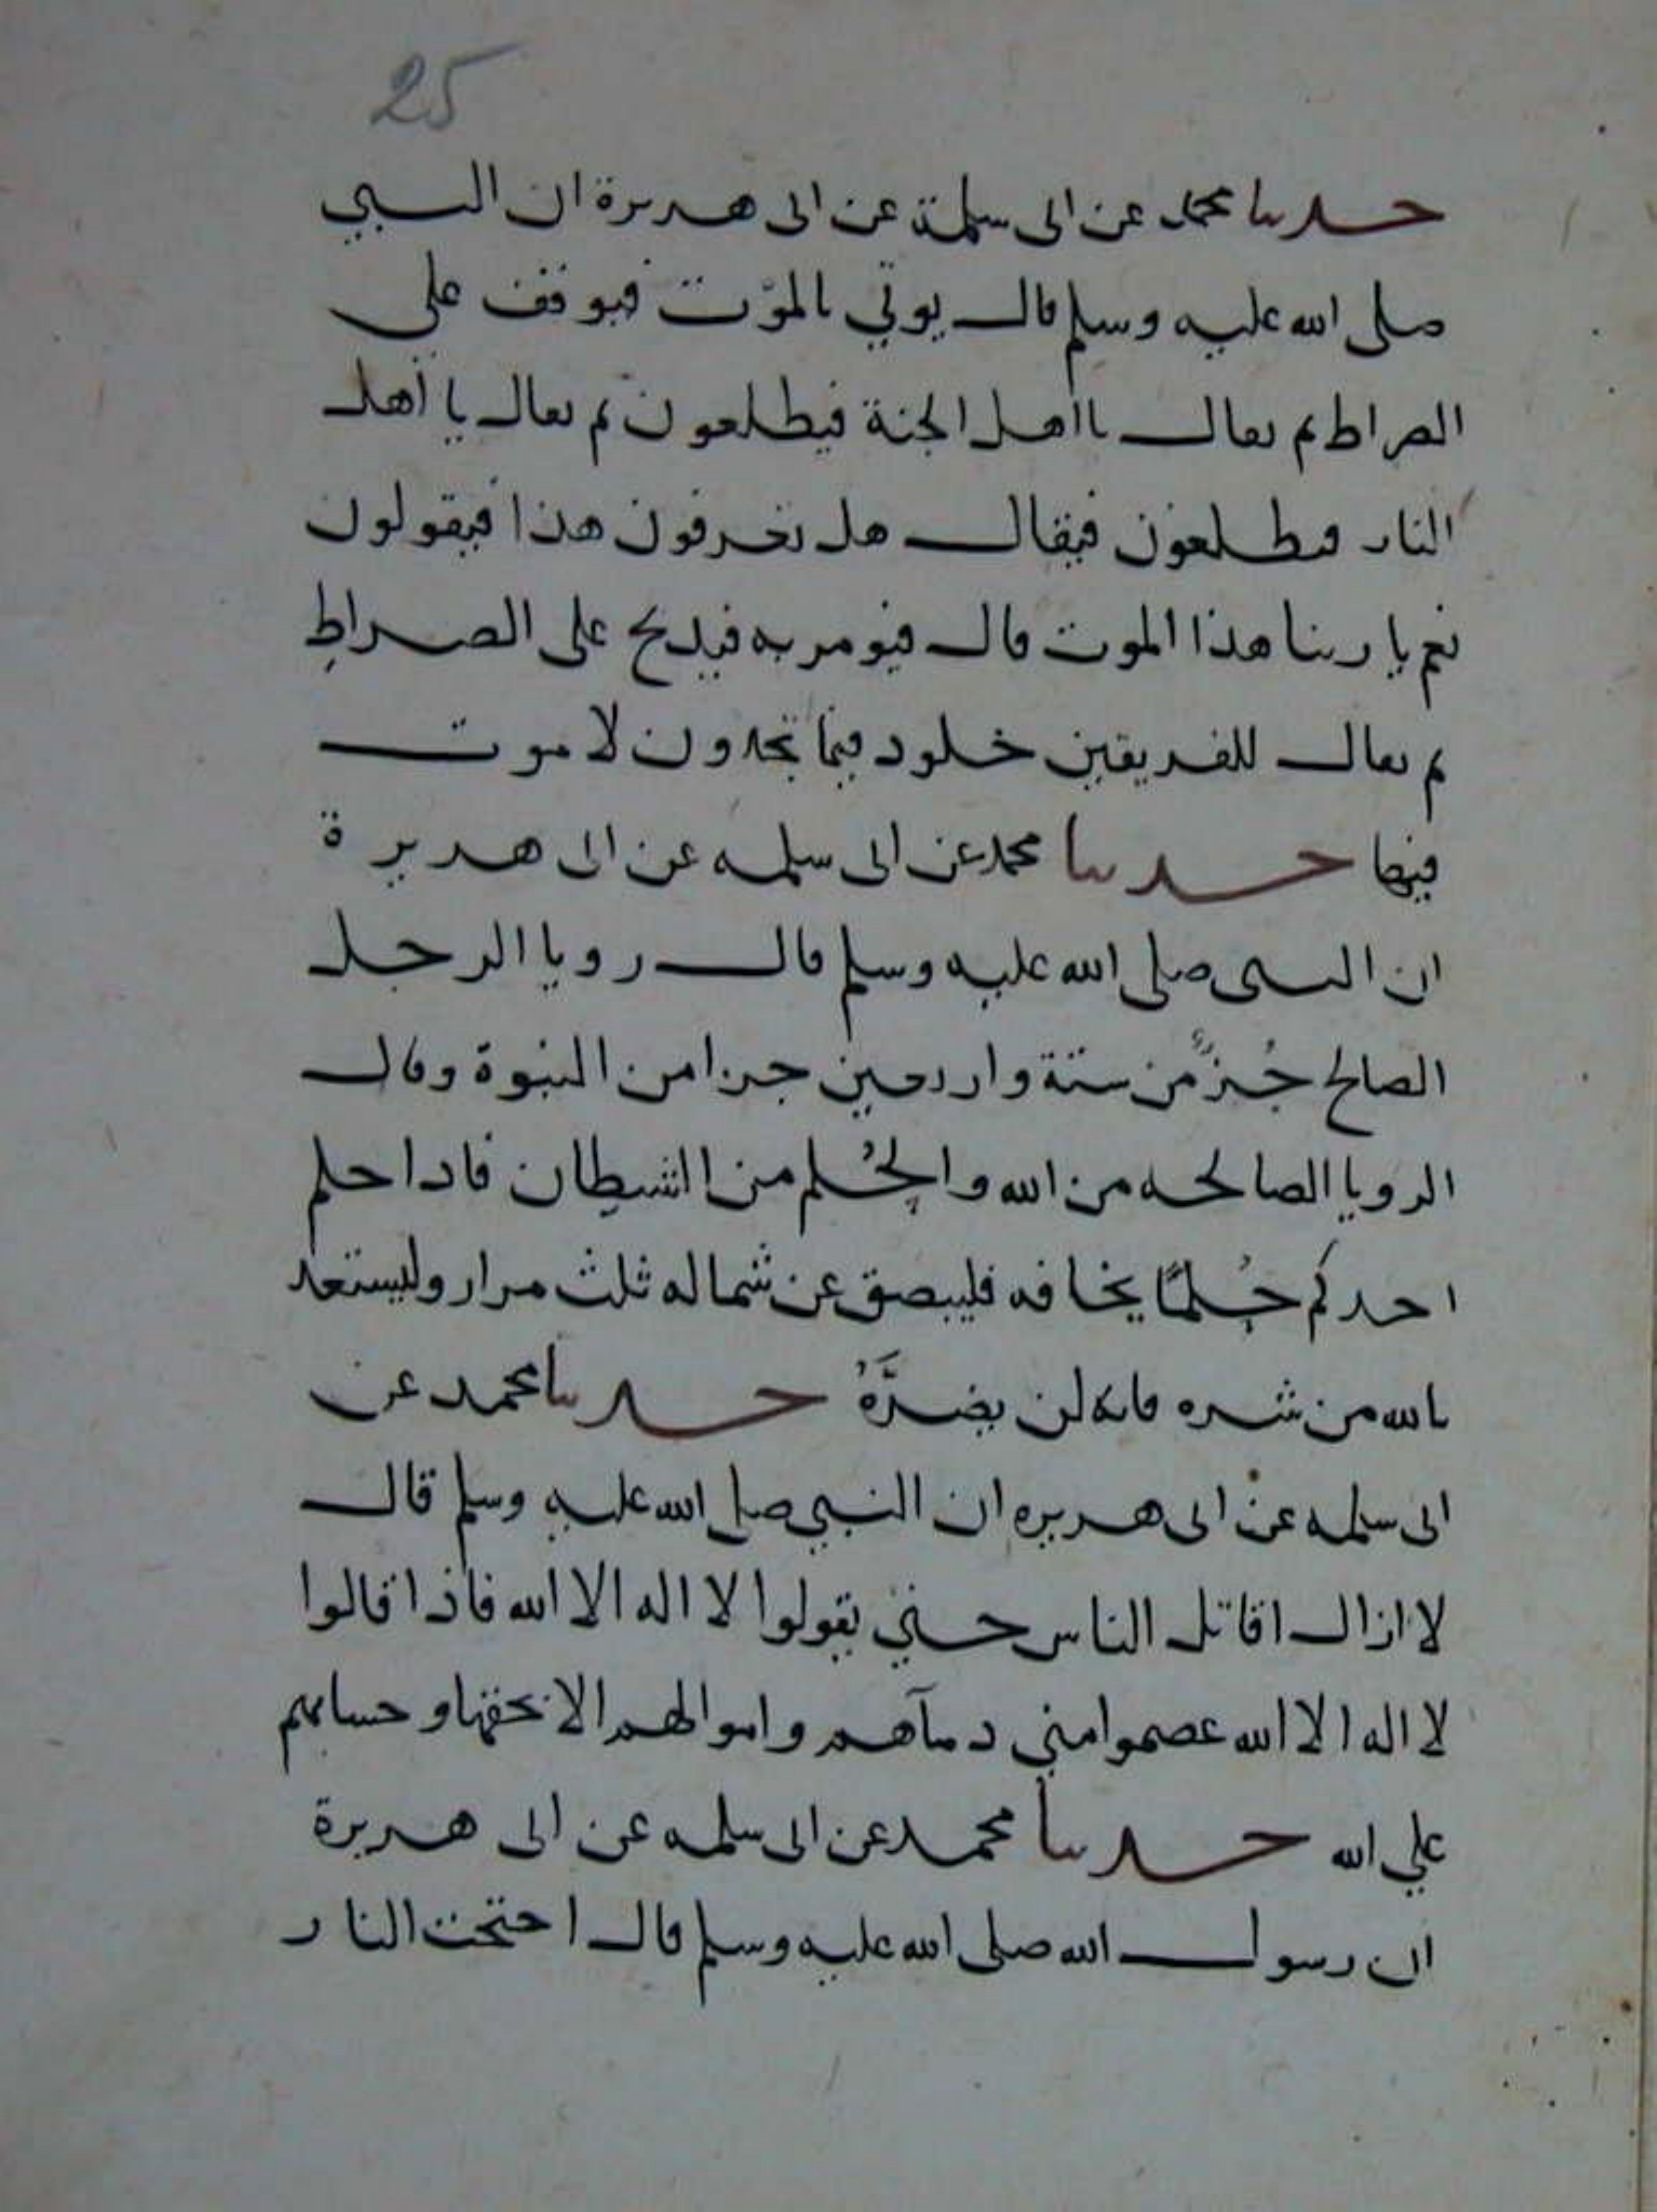 25
حدثنا محمد عن ابى سلمة عن ابى هريرة ان النبي
صلى الله عليه وسلم قال يوتي بالموت فيوقف على
الصراط ثم يقال يا اهل الجنة فيطلعون ثم يقال يا اهل
النار فيطلعون فيقال هل تعرفون هذا فيقولون
نعم يا ربنا هذا الموت قال فيومر به فيذبح على الصراط
ثم يقال للفريقين خلود فيما تجدون لا موت
فيها حدثنا محمد عن ابى سلمه عن ابى هريرة
ان النبى صلى الله عليه وسلم قال رويا الرجل
الصالح جُزءٌ من ستة واربعين جزا من النبوة وقال
الرويا الصالحه من الله والحُلم من الشيطان فاذا حلم
احدكم حُلمًا يخافه فليبصق عن شماله ثلث مرار وليستعذ
بالله من شره فانه لن يضرَّهُ حدثنا محمد عن
ابى سلمه عن ابى هريره ان النبي صلى الله عليه وسلم قال
لا ازال اقاتل الناس حتي يقولوا لا اله الا الله فاذا قالوا
لا اله الا الله عصموا مني دمآهم واموالهم الا بحقها وحسابهم
علي الله حدثنا محمد عن ابى سلمه عن ابى هريرة
ان رسول الله صلى الله عليه وسلم قال احتجت النار